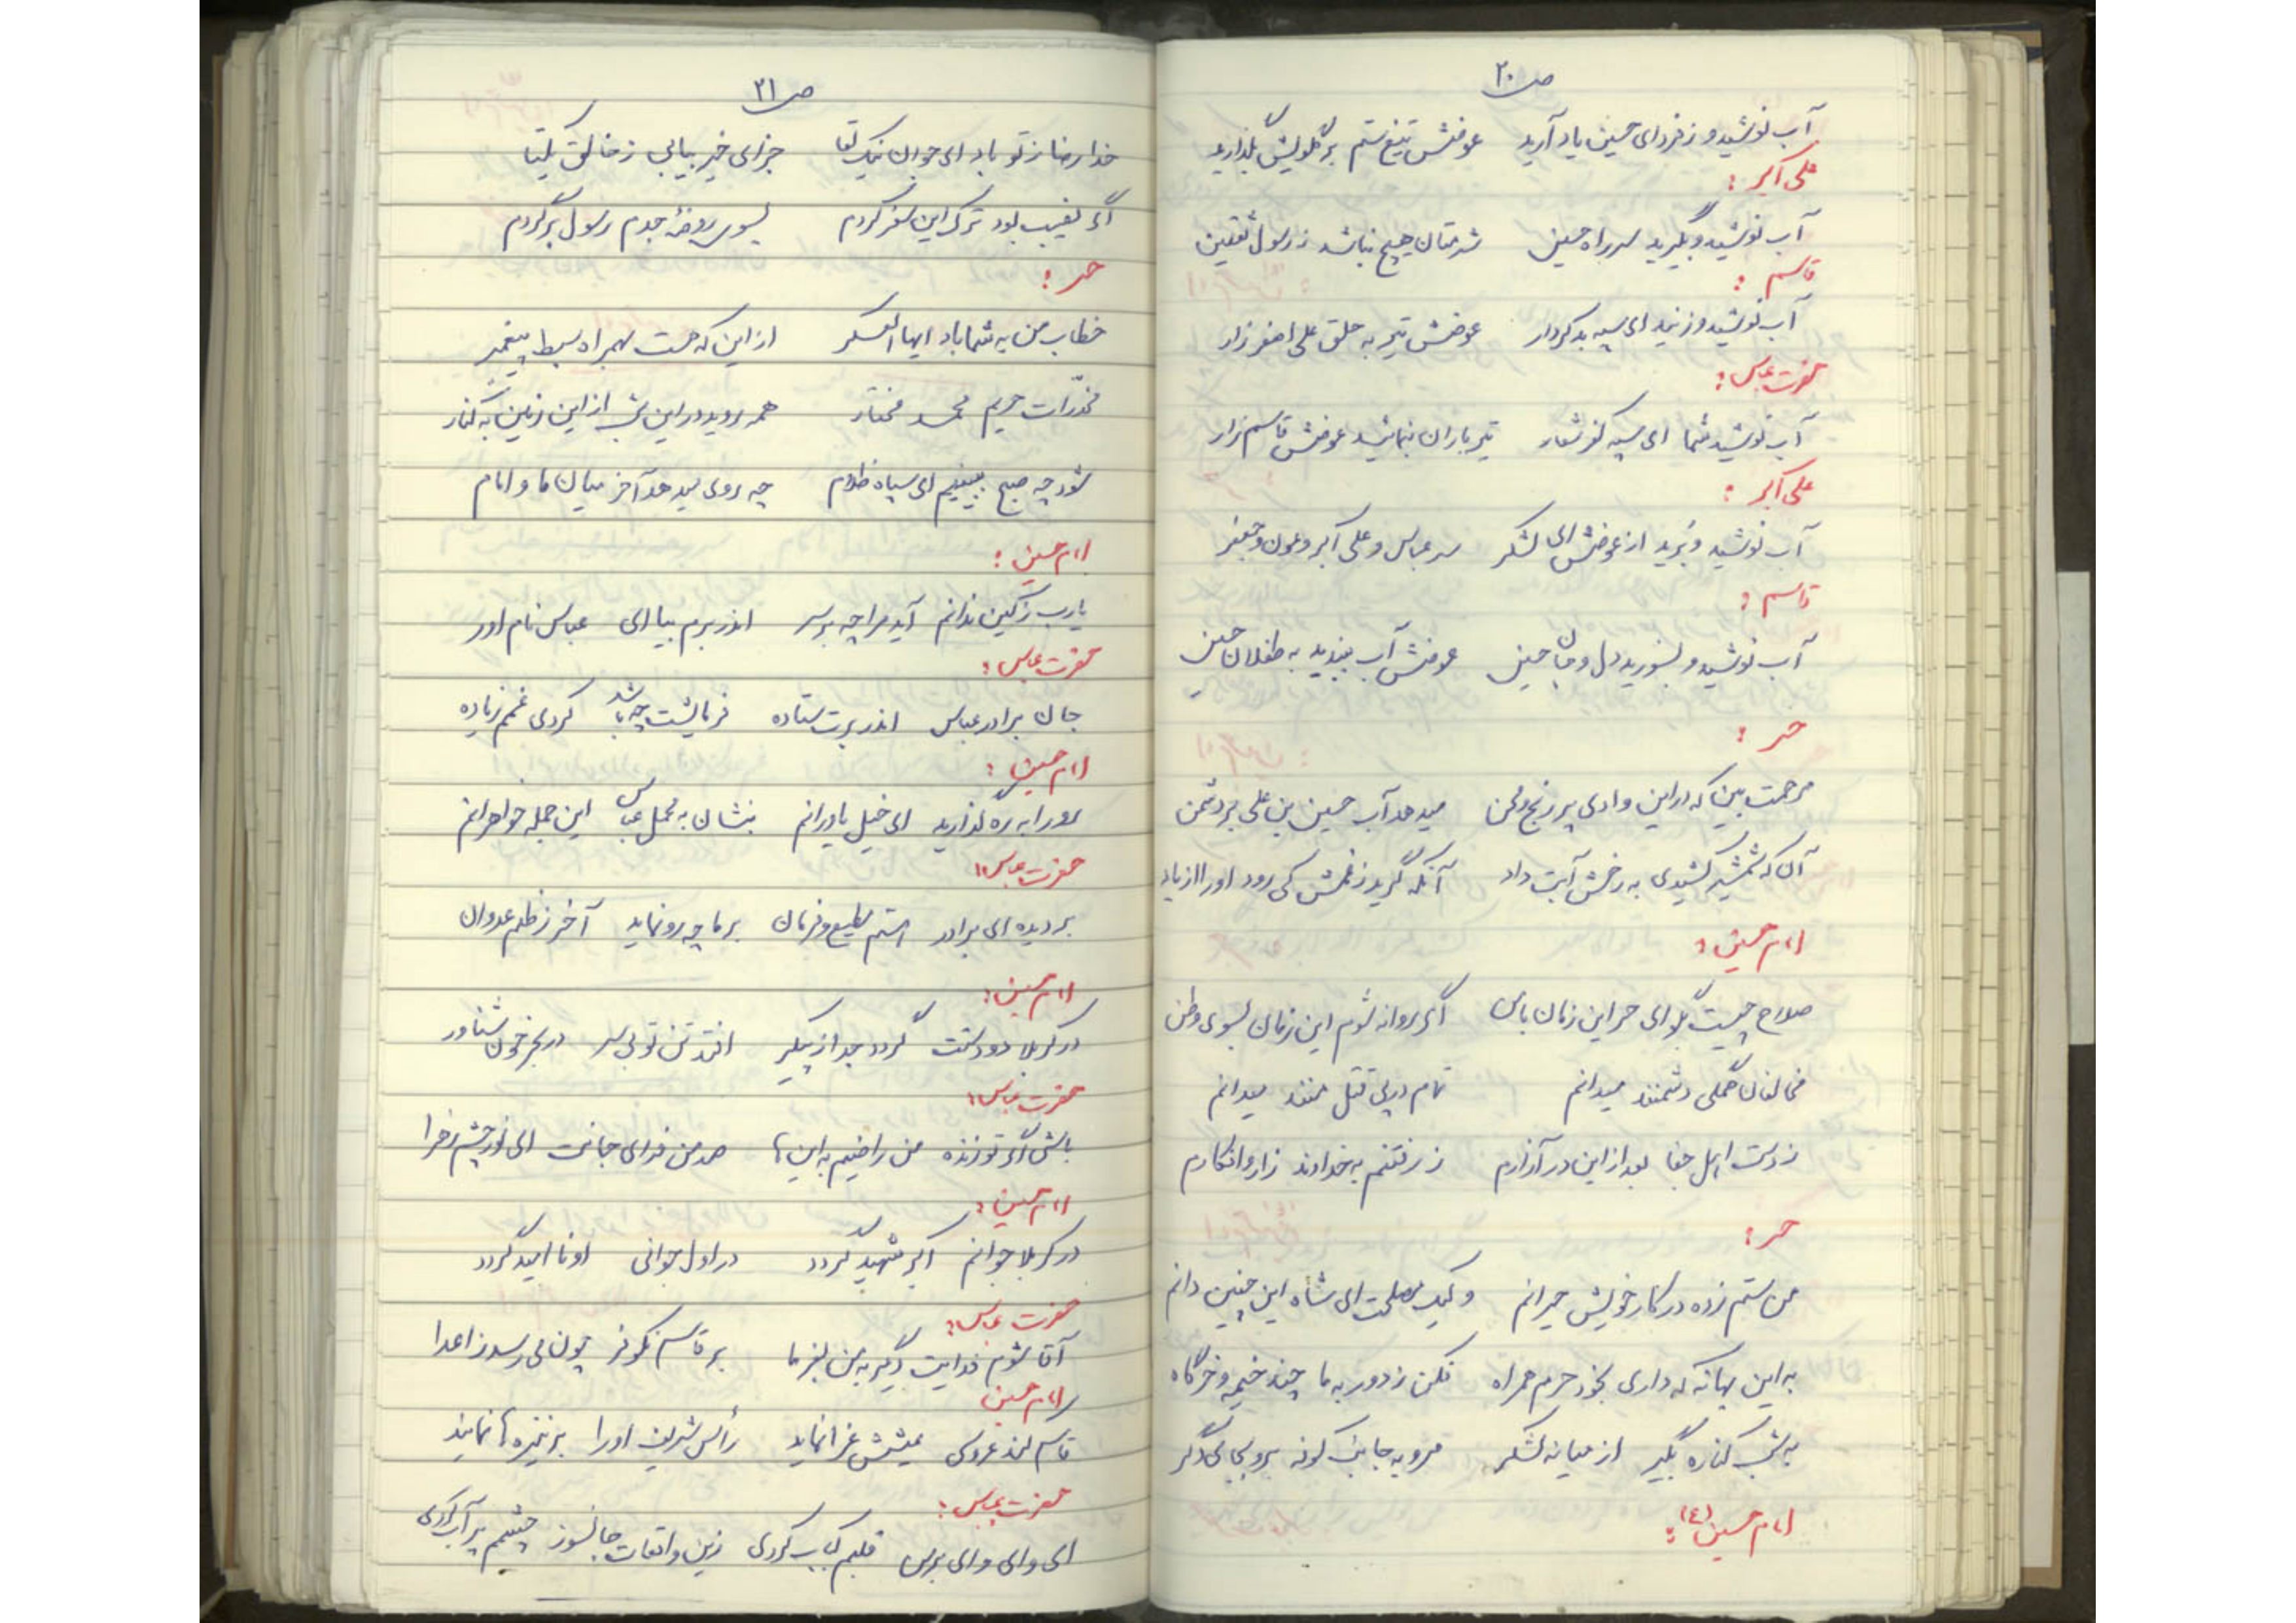 ص۲۰
آب نوشید و ز فردای حسین یاد آرید عوضش تیغ ستم بر گلویش بگذارید
علی اکبر:
آب نوشید و بگیرید سر راه حسین شرمتان هیچ نباشد ز رسول ثقلین
قاسم:
آب نوشید و زنید ای سپه بدکردار عوضش تیر به حلق علی اصغر زار
حضرت عباس:
آب نوشید شما ای سپه کفر شعار تیر باران بنمائید عوضش قاسم زار
علی اکبر:
آب نوشید و بُرید از عوضش ای لشکر سر عباس و علی اکبر و عون و جعفر
قاسم:
آب نوشید و بسوزید دل و جان حسین عوضش آب ببندید به طفلان حسین
حر:
مرحمت بین که در این وادی پر رنج و محن میدهد آب حسین بن علی بر دشمن
آن که شمشیر کشیدی به رخش آبت داد آنکه گرید ز غمش کی رود او را از یاد
امام حسین:
صلاح چیست بگو ای حر این زمان با من اگر روانه شوم این زمان بسوی وطن
مخالفان همگی دشمنند میدانم تمام در پی قتل منند میدانم
ز دست اهل جفا بعد از این در آزارم ز رفتنم به خداوند زار و افکارم
حر:
من ستم زده در کار خویش حیرانم و لیک مصلحت ای شاه این چنین دانم
به این بهانه که داری بخود حرم همراه فکن ز دور به ما چند خیمه و خرگاه
به شب کناره بگیر از میانه لشکر مرو به جانب کوفه برو بجای دگر
امام حسین (ع):
ص۲۱
خدا رضا ز تو باد ای جوان نیک لقا جزای خیر بیابی ز خالق یکتا
اگر نصیب بود ترک این سفر کردم بسوی روضهٔ جدم رسول برگردم
حر:
خطاب من به شما باد ایها العسکر از این که هست بهمراه سبط پیغمبر
مخدّرات حریم محمد مختار همه روید در این شب از این زمین به کنار
شود چه صبح ببینیم ای سپاه ظلام چه روی میدهد آخر میان ما و امام
امام حسین:
یارب ز کین ندانم آید مرا چه بر سر اندر برم بیا ای عباس نام آور
حضرت عباس:
جان برادر عباس اندر برت ستاده فرمایشت چه باشد کردی غمم زیاده
امام حسین:
رو را به ره گذارید ای خیل یاورانم بنشان به محمل عباس این جمله خواهرانم
حضرت عباس:
بر دیده ای برادر هستم مطیع و فرمان بر ما چه رو نماید آخر ز ظلم عدوان
امام حسین:
در کربلا دو دستت گردد جدا ز پیکر افتد تن تو بی سر در بحر خون شناور
حضرت عباس:
باشی اگر تو زنده من راضیم به اینها صد من فدای جانت ای نور چشم زهرا
امام حسین:
در کربلا جوانم اکبر شهید گردد در اول جوانی او نا امید گردد
حضرت عباس:
آقا شوم فدایت دیگر به من بفرما بر قاسم نکوفر چون می رسد ز اعدا
امام حسین
قاسم کند عروسی عیشش عزا نماید رأس شریف او را بر نیزه ها نمایند
حضرت عباس:
ای وای وای بر من قلبم کباب کردی زین واقعات جانسوز چشمم پر آب کردی